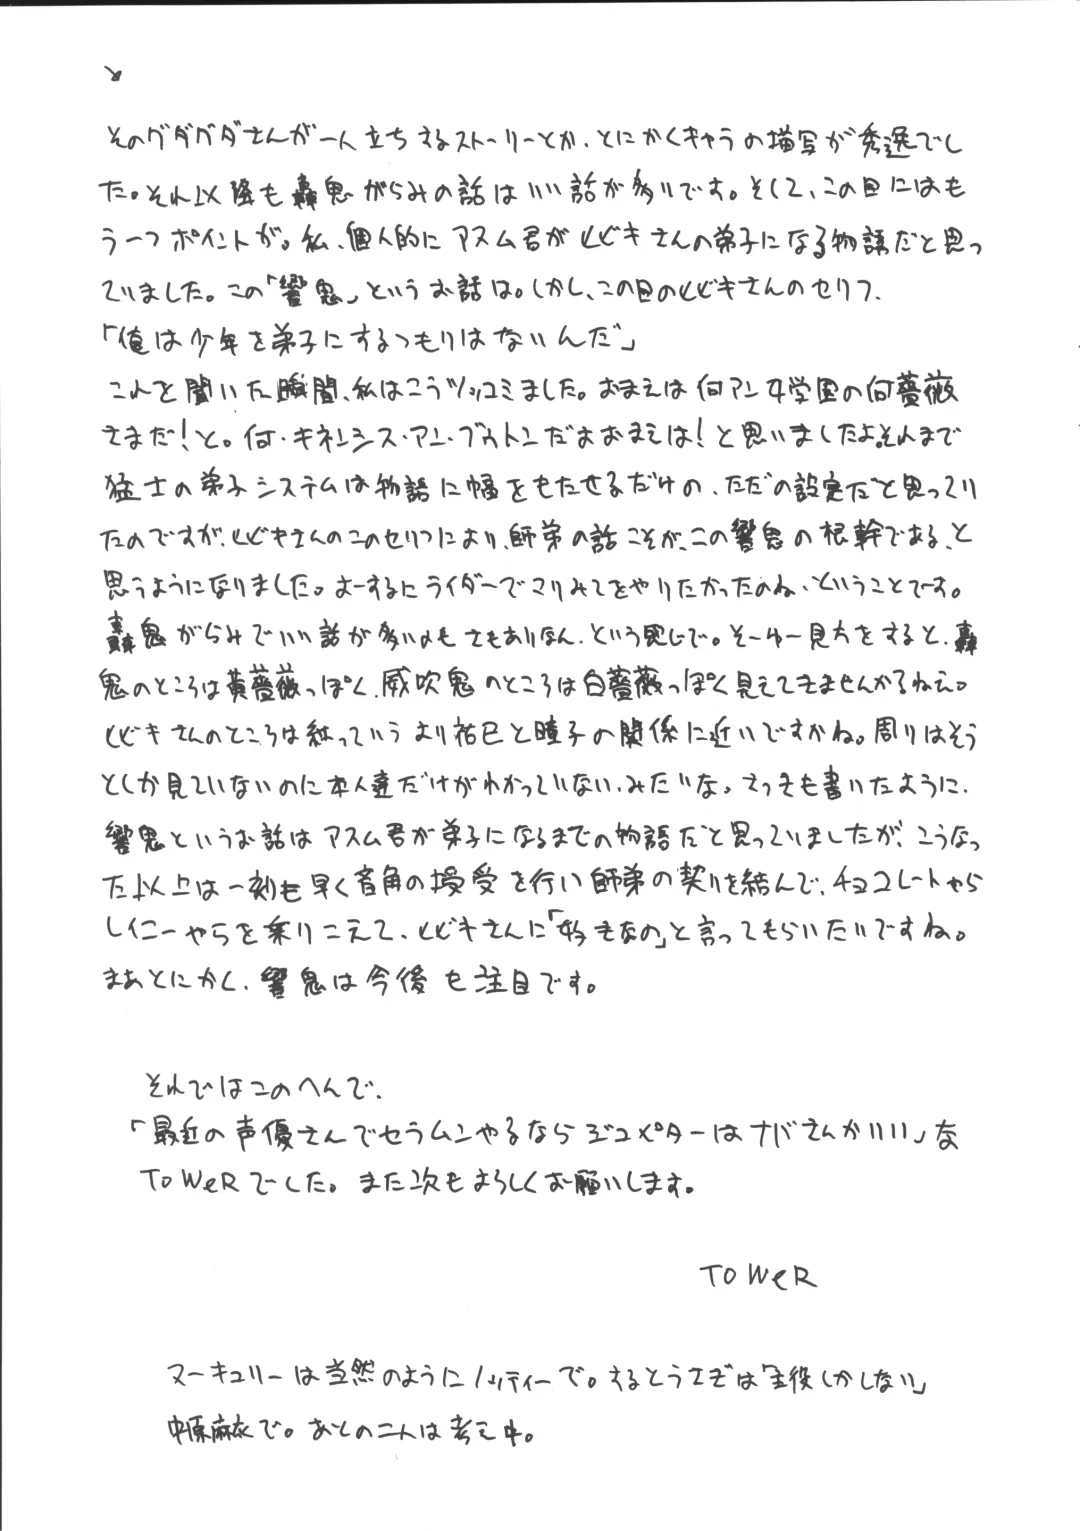 そのグダグダさんが一人立ちするストーリーとか、とにかくキャラの描写が秀逸でし
た。それ以降も轟鬼がらみの話はいい話が多いです。そして、この日にはも
う一つポイントが。私、個人的にアスム君がヒビキさんの弟子になる物語だと思っ
ていました。この「響鬼」というお話は。しかし、この日のヒビキさんのセリフ、
「俺は少年を弟子にするつもりはないんだ」
これを聞いた瞬間、私はこうツッコミました。おまえは何アン女学園の何薔薇
さまだ!と。何・キネンシス・アン・ブゥトンだよおまえは!と思いましたよ。それまで
猛士の弟子システムは物語に幅をもたせるだけの、ただの設定だと思ってい
たのですが、ヒビキさんのこのセリフにより、師弟の話こそが、この響鬼の根幹である、と
思うようになりました。よーするにライダーでマリみてをやりたかったのね、ということです。
轟鬼がらみでいい話が多いのもさもありなん、という感じで。そーゆー見方をすると、轟
鬼のところは黄薔薇っぽく、威吹鬼のところは白薔薇っぽく見えてきませんかるねえ。
ヒビキさんのところは紅っていうより祐巳と瞳子の関係に近いですかね。周りはそう
としか見ていないのに本人達だけがわかっていない、みたいな。さっきも書いたように、
響鬼というお話はアスム君が弟子になるまでの物語だと思っていましたが、こうなっ
た以上は一刻も早く音角の授受を行い師弟の契りを結んで、チョコレートやら
レイニーやらを乗りこえて、ヒビキさんに「好きなの」と言ってもらいたいですね。
まあとにかく、響鬼は今後も注目です。
それではこのへんで、
「最近の声優さんでセラムンやるならジュピターはナバさんがいい」な
TOWeRでした。また次もよろしくお願いします。
TOWeR
マーキュリーは当然のようにノッティーで。するとうさぎは「主役しかしない」
中原麻衣で。あとの二人は考え中。